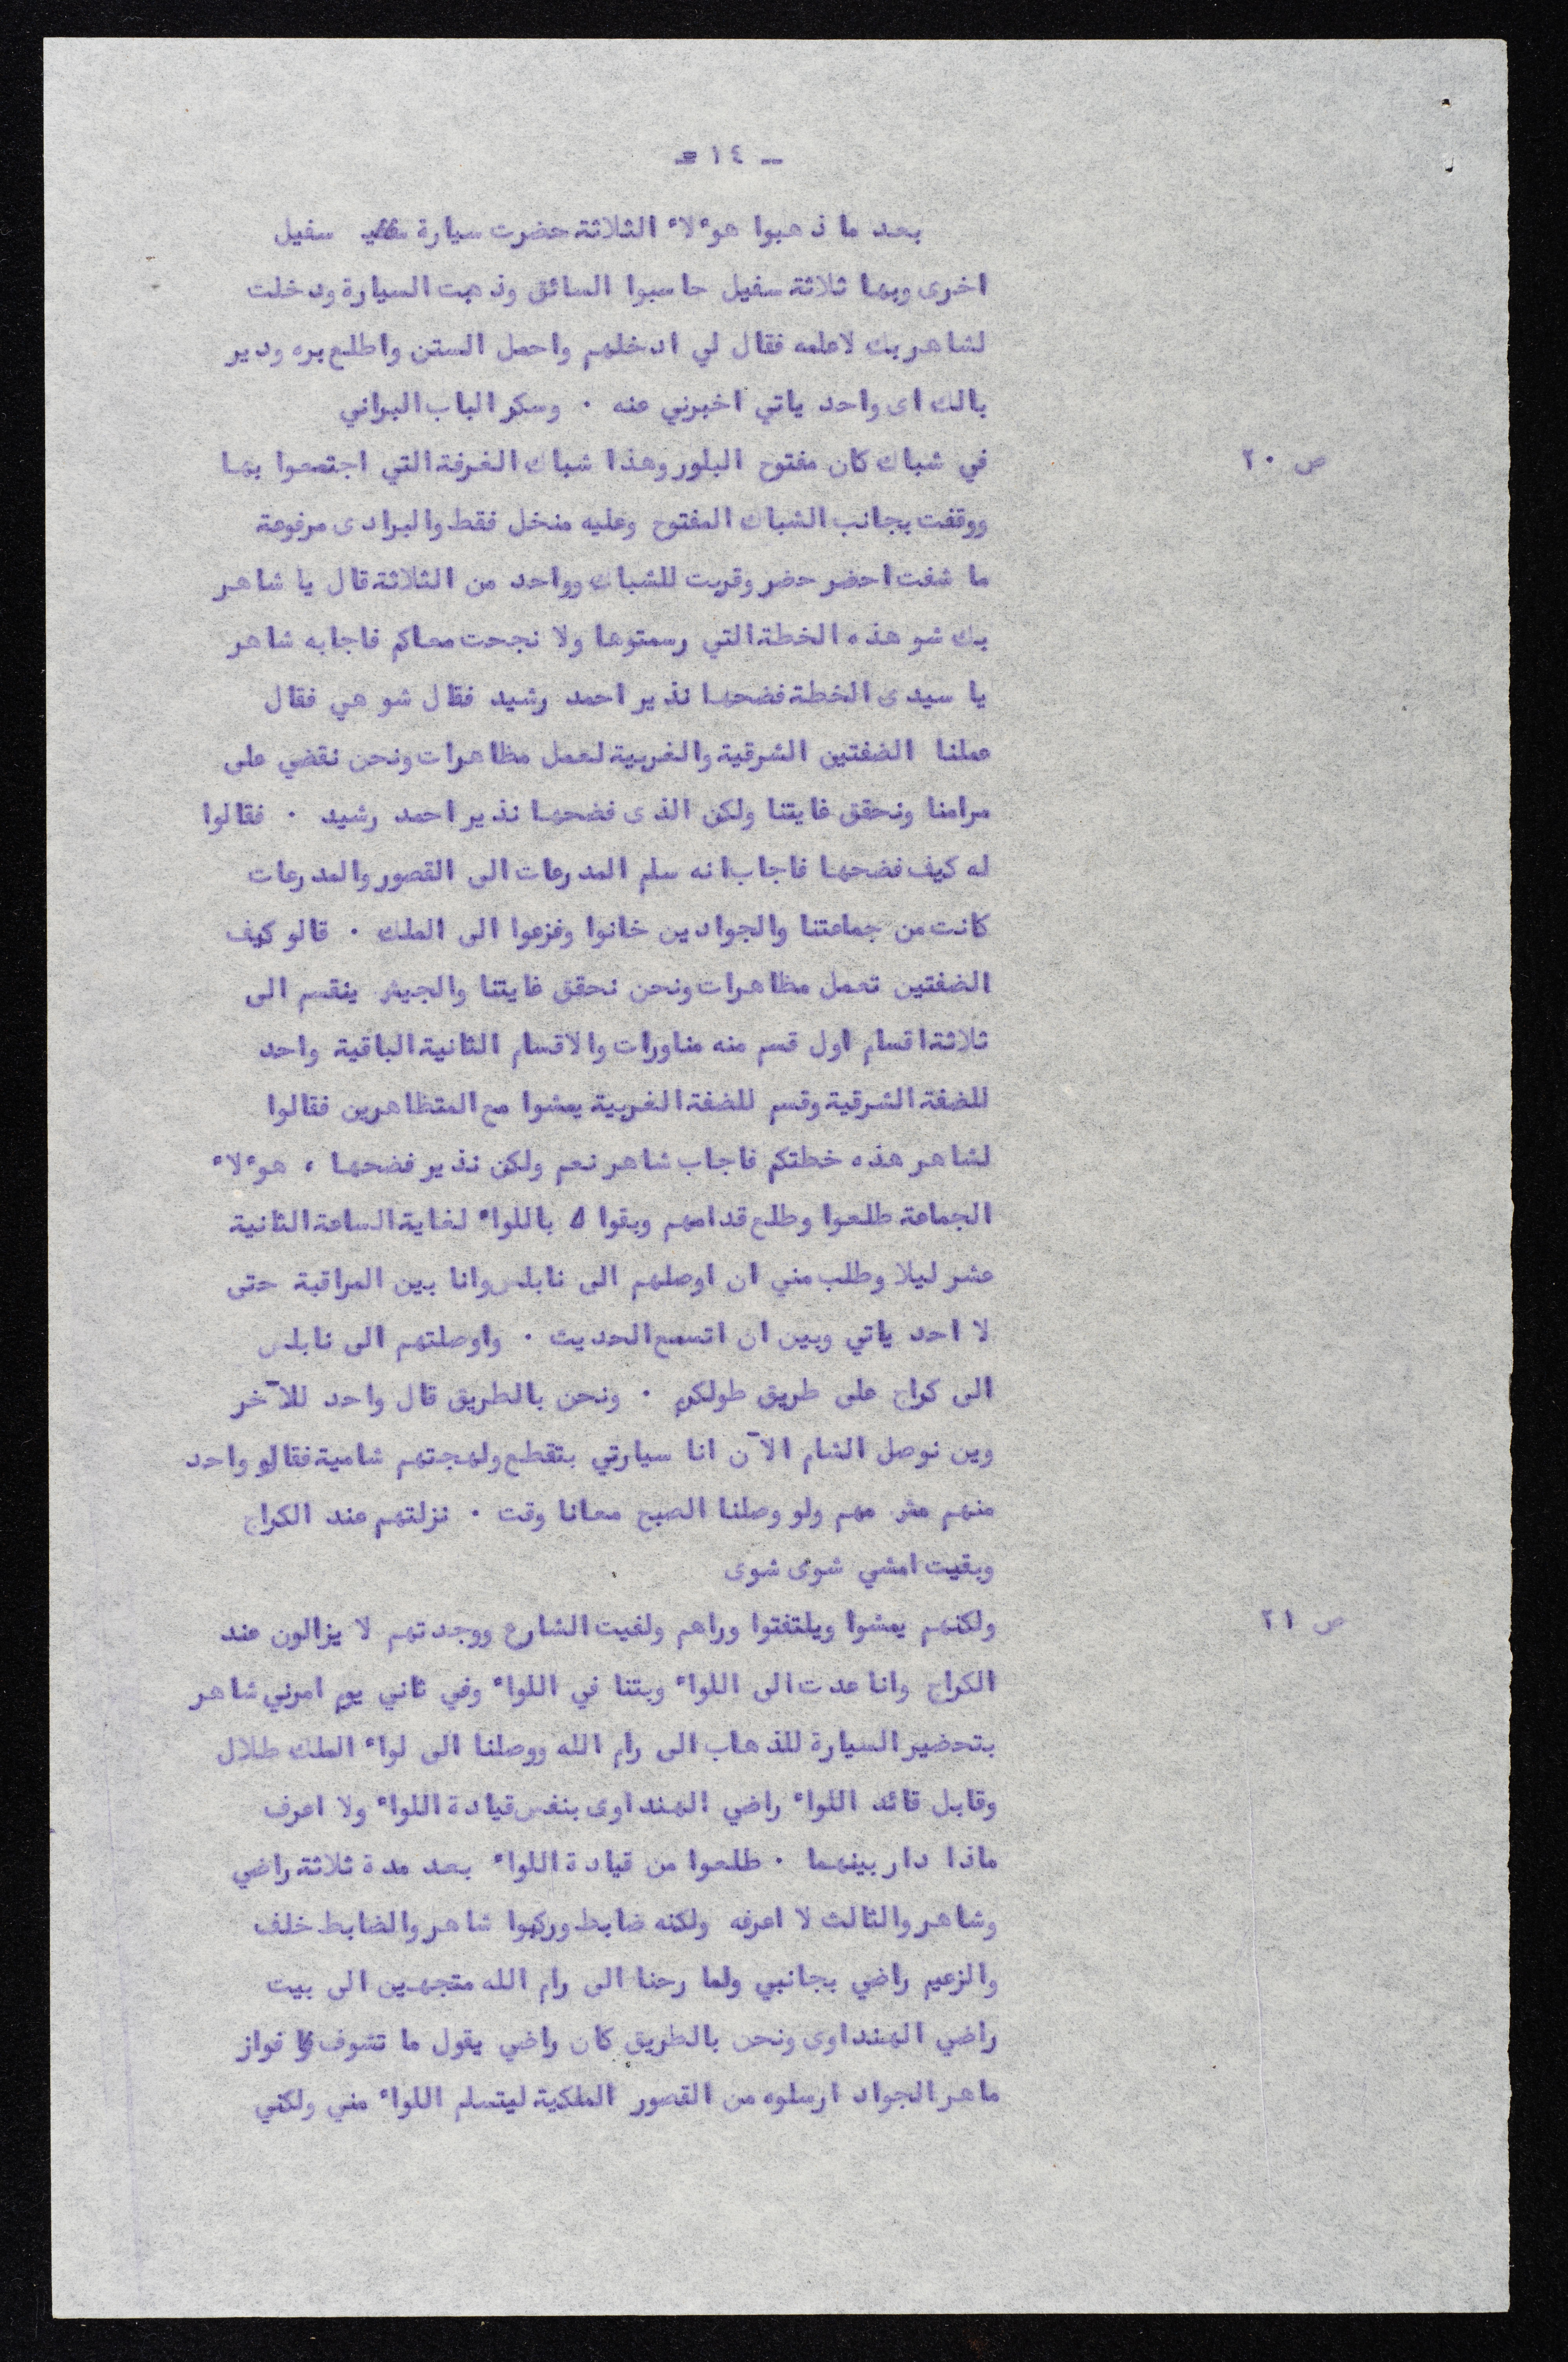 ــ ١٤ ــ
بعد ما ذهبوا هوءلاء الثلاثة حضرت سيارة سفيل
اخرى وبها ثلاثة سفيل حاسبوا السائق وذهبت السيارة ودخلت
لشاهر بك لاعلمه فقال لي ادخلهم واحمل الستن واطلع بره ودير
بالك اى واحد ياتي اخبرني عنه ٠ وسكر الباب البراني
ص ٢٠ في شباك كان مفتوح البلور وهذا شباك الغرفة التي اجتمعوا بها
ووقفت بجانب الشباك المفتوح وعليه منخل فقط والبرادى مرفوعة
ما شفت احضر حضر وقربت للشباك وواحد من الثلاثة قال يا شاهر
بك شو هذه الخطة التي رسمتوها ولا نجحت معاكم فاجابه شاهر
يا سيدى الخطة فضحها نذير احمد رشيد فقال شو هي فقال
عملنا الضفتين الشرقية والغربية لعمل مظاهرات ونحن نقضي على
مرامنا ونحقق غايتنا ولكن الذى فضحها نذير احمد رشيد ٠ فقالوا
له كيف فضحها فاجاب انه سلم المدرعات الى القصور والمدرعات
كانت من جماعتنا والجوادين خانوا وفزعوا الى الملك ٠ قالو كيف
الضفتين تعمل مظاهرات ونحن نحقق غايتنا والجيش ينقسم الى
ثلاثة اقسام اول قسم منه مناورات والاقسام الثانية الباقية واحد
للضفة الشرقية وقسم للضفة الغربية يمشوا مع المتظاهرين فقالوا
لشاهر هذه خطتكم فاجاب شاهر نعم ولكن نذير فضحها ، هوءلاء
الجماعة طلعوا وطلع قدامهم وبقوا باللواء لغاية الساعة الثانية
عشر ليلا وطلب مني ان اوصلهم الى نابلس وانا بين المراقبة حتى
لا احد ياتي وبين ان اتسمع الحديث ٠ واوصلتهم الى نابلس
الى كراج على طريق طولكرم ٠ ونحن بالطريق قال واحد للآخر
وين نوصل الشام الآن انا سيارتي بتقطع ولهجتهم شامية فقالو واحد
منهم مش مهم ولو وصلنا الصبح معانا وقت ٠ نزلتهم عند الكراج
وبقيت امشي شوى شوى
ص ٢١ ولكنهم يمشوا ويلتفتوا وراهم ولفيت الشارع ووجدتهم لا يزالون عند
الكراج وانا عدت الى اللواء وبتنا في اللواء وفي ثاني يوم امرني شاهر
بتحضير السيارة للذهاب الى رام الله ووصلنا الى لواء الملك طلال
وقابل قائد اللواء راضي الهنداوى بنفس قيادة اللواء ولا اعرف
ماذا دار بينهما ٠ طلعوا من قيادة اللواء بعد مدة ثلاثة راضي
وشاهر والثالث لا اعرفه ولكنه ضابط وركبوا شاهر والضابط خلف
والزعيم راضي بجانبي ولما رحنا الى رام الله متجهين الى بيت
راضي الهنداوى ونحن بالطريق كان راضي يقول ما تشوف فواز
ماهر الجواد ارسلوه من القصور الملكية ليتسلم اللواء مني ولكني